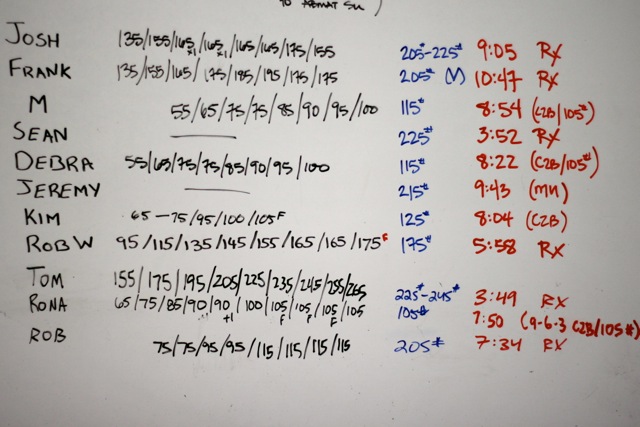 TO
JOSH 135/155/165/165/165/165/175/155 205#-225# 9:05 RX
x1 x1
FRANK 135/155/165/175/185/195/175/175 205# (V) 10:47 RX
M 55/65/75/75/85/90/95/100 115# 8:54 (C2B/105#)
SEAN 225# 3:52 RX
DEBRA 55/65/75/75/85/90/95/100 115# 8:22 (C2B/105#)
JEREMY 215# 9:43 (MU)
KIM 65-75/95/100/105F 125# 8:04 (C2B)
ROB W 95/115/135/145/155/165/165/175F 175# 5:58 RX
TOM 155/175/195/205/225/235/245/255/265 225#-245# 3:49 RX
RONA 65/75/85/90/90/100/105/105/105/105 105# 7:50 (9-6-3 C2B/105#)
+1 F F F
ROB 75/75/95/95/115/115/115/115 205# 7:34 RX